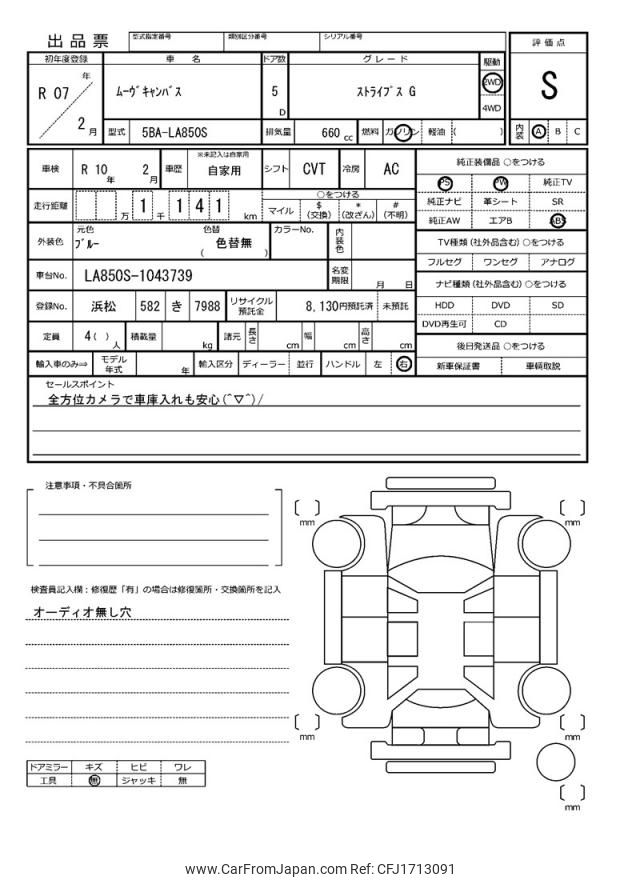 出品票
型式指定番号 類別区分番号 シリアル番号
初年度登録 車名 ドア数 グレード 駆動 評価点
R 07 年 2 月 ムーヴキャンバス 5 D ストライプス G 2WD 4WD S
型式 5BA-LA850S 排気量 660 cc 燃料 ガソリン 軽油 ( ) 内装 A B C
車検 R 10 年 2 月 車歴 ※未記入は自家用 自家用 シフト CVT 冷房 AC
純正装備品 ○をつける
PS PW 純正TV
純正ナビ 革シート SR
純正AW エアB ABS
走行距離 万 1 千 1 4 1 km
○をつける
マイル $(交換) *(改ざん) #(不明)
TV種類(社外品含む)○をつける
フルセグ ワンセグ アナログ
外装色 元色 ブルー 色替 ( 色替無 ) カラーNo. 内装色
車台No. LA850S-1043739 名変期限 月 日
ナビ種類(社外品含む)○をつける
HDD DVD SD
DVD再生可 CD
登録No. 浜松 582 き 7988 リサイクル預託金 8,130円預託済 未預託
定員 4( ) 人 積載量 kg 諸元 長さ cm 幅 cm 高さ cm
後日発送品 ○をつける
新車保証書 車輌取説
輸入車のみ⇒ モデル年式 年 輸入区分 ディーラー 並行 ハンドル 左 右
セールスポイント
全方位カメラで車庫入れも安心(^▽^)/
注意事項・不具合箇所
検査員記入欄：修復歴「有」の場合は修復箇所・交換箇所を記入
オーディオ無し穴
mm
mm
mm
mm
mm
ドアミラー キズ ヒビ ワレ
工具 無 ジャッキ 無
www.CarFromJapan.com Ref: CFJ1713091